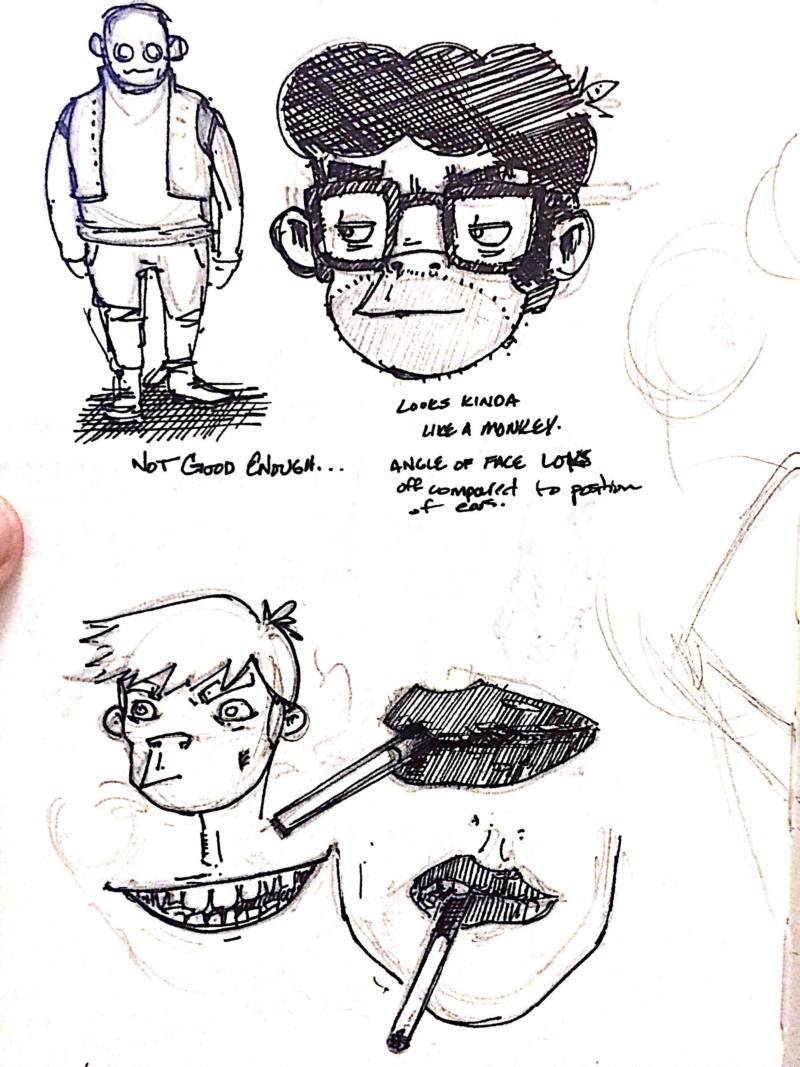 NOT GOOD ENOUGH...
LOOKS KINDA
LIKE A MONKEY.
ANGLE OF FACE LOOKS
off compared to position
of ears.